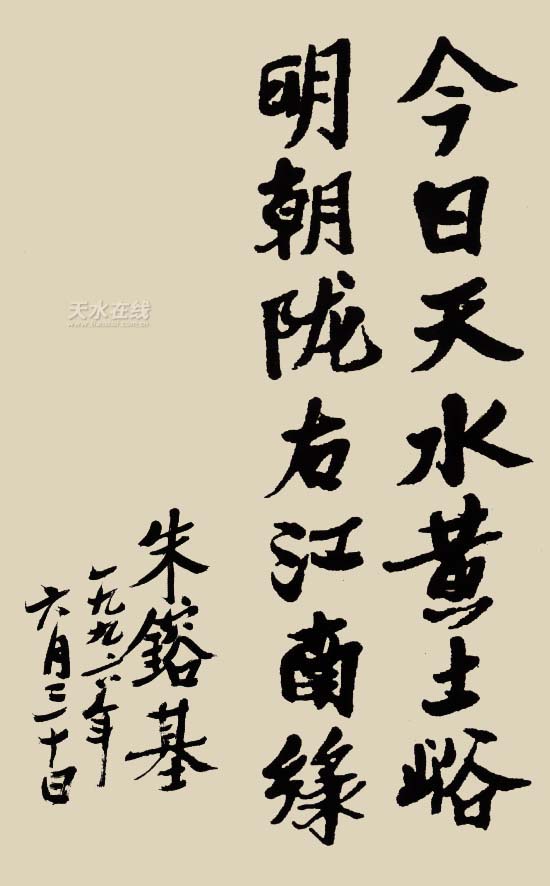 今日天水黄土峪
明朝陇右江南綠
朱鎔基
一九九六年
六月三十日
天水在线
www.tianshui.com.cn